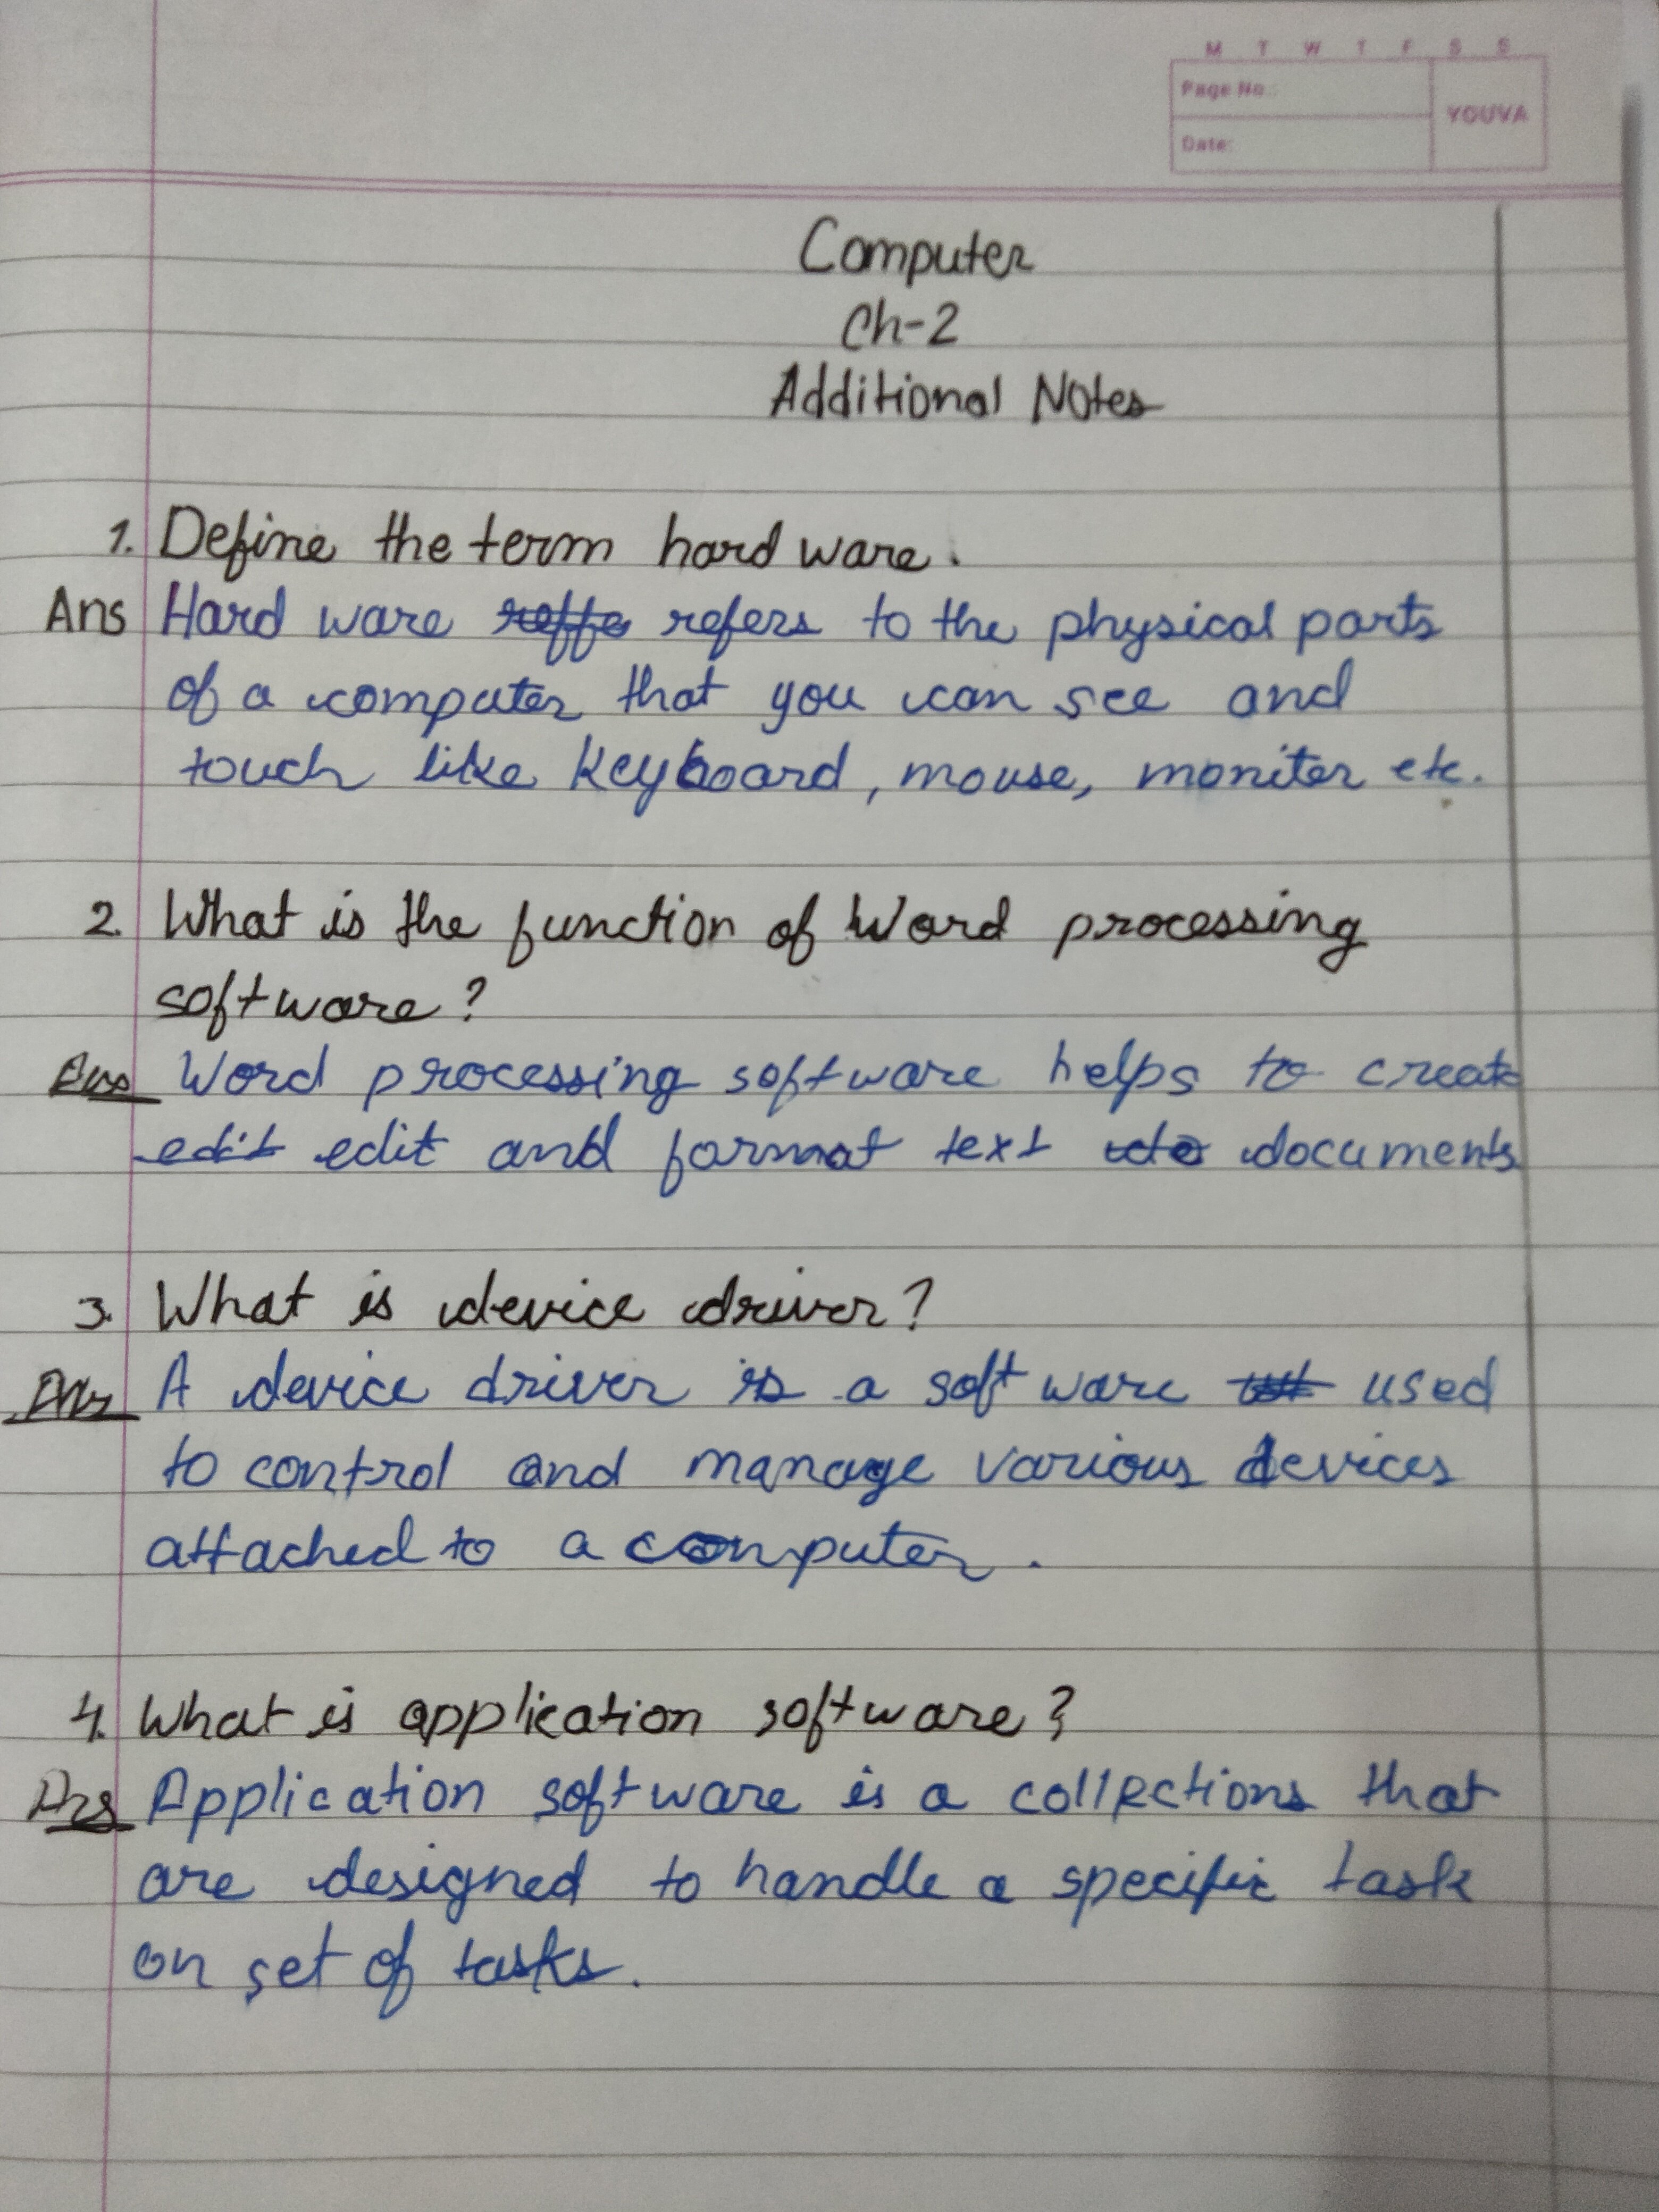 M T W T F S S
Page No.:
YOUVA
Date:
Computer
Ch-2
Additional Notes
1. Define the term hard ware.
Ans Hard ware reffe refers to the physical parts
of a computer that you can see and
touch like keyboard, mouse, moniter etc.
2. What is the function of Word processing
software?
Ans Word processing software helps to create
edit edit and format text documents
3. What is device driver?
Ans A device driver is a soft ware used
to control and manage various devices
attached to a computer.
4. What is application software?
Ans Application software is a collections that
are designed to handle a specific task
on set of tasks.